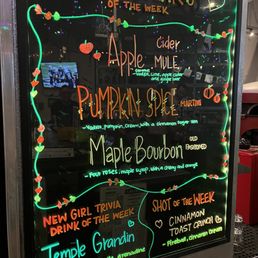 OF THE WEEK
Apple Cider
MULE
- Vodka, Lime, apple cider
and ginger beer
PUMPKIN SPICE MARTINI
- Vodka, Pumpkin, Cream, with a cinnamon sugar rim
Maple Bourbon OLD
FASHIONED
- Four roses, maple syrup, with a cherry and orange
NEW GIRL TRIVIA
DRINK OF THE WEEK
Temple Grandin
grenadine
SHOT OF THE WEEK
CINNAMON
TOAST CRUNCH
- Fireball, cinnamon cream